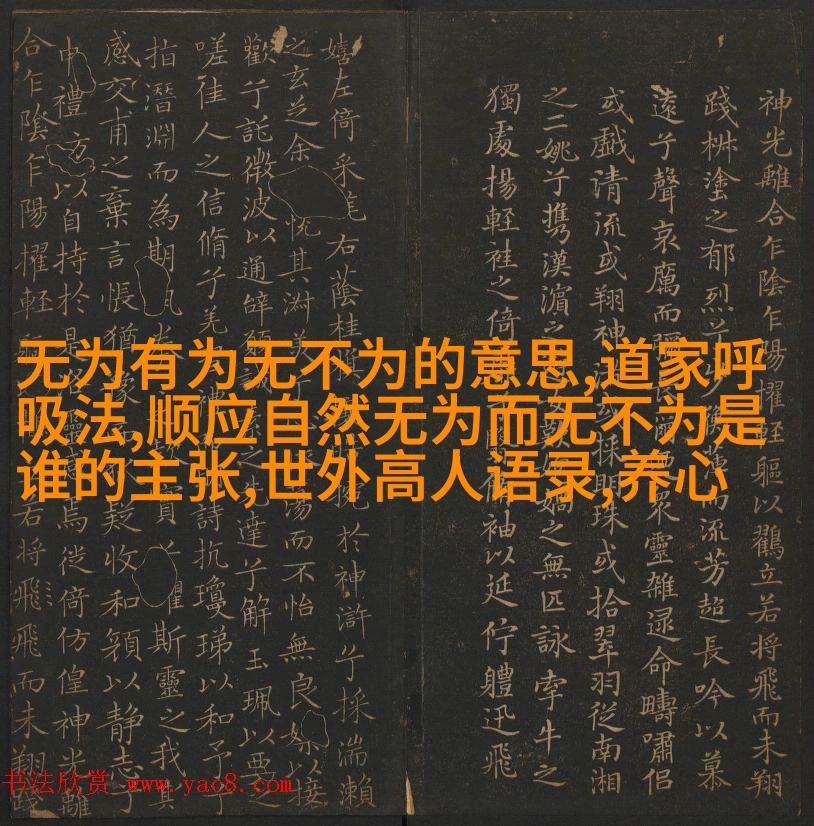 神光離合乍陰乍陽擢輕軀以鸛立若將飛而未翔
踐椒塗之郁烈而流芳超長吟以慕
遠兮聲哀厲而眾靈雜遝命疇嘯侶
或戲清流或翔神採明珠或拾翠羽從南湘
之二姚兮攜漢濱之之無匹詠牽牛之
獨處揚輕袿之倚袖以延佇體迅飛
嬉左倚采旄右蔭桂於神滸兮採湍瀨
之玄芝余悅其淑美蕩而不怡無良媒以接
歡兮託微波以通辭願之先達兮解玉珮以要之
嗟佳人之信脩兮羌禮詩抗瓊珶以和予兮
指潛淵而為期眷實兮懼斯靈之我其
感交甫之棄言悵猶豫疑收和顏以靜志兮
申禮方以自持於是洛靈感焉徙倚仿偟神光離
合乍陰乍陽擢輕若將飛飛而未翔踐
无为有为无不为的意思,道家呼
吸法,顺应自然无为而无不为是
谁的主张,世外高人语录,养心
书法欣赏 www.yac8.com